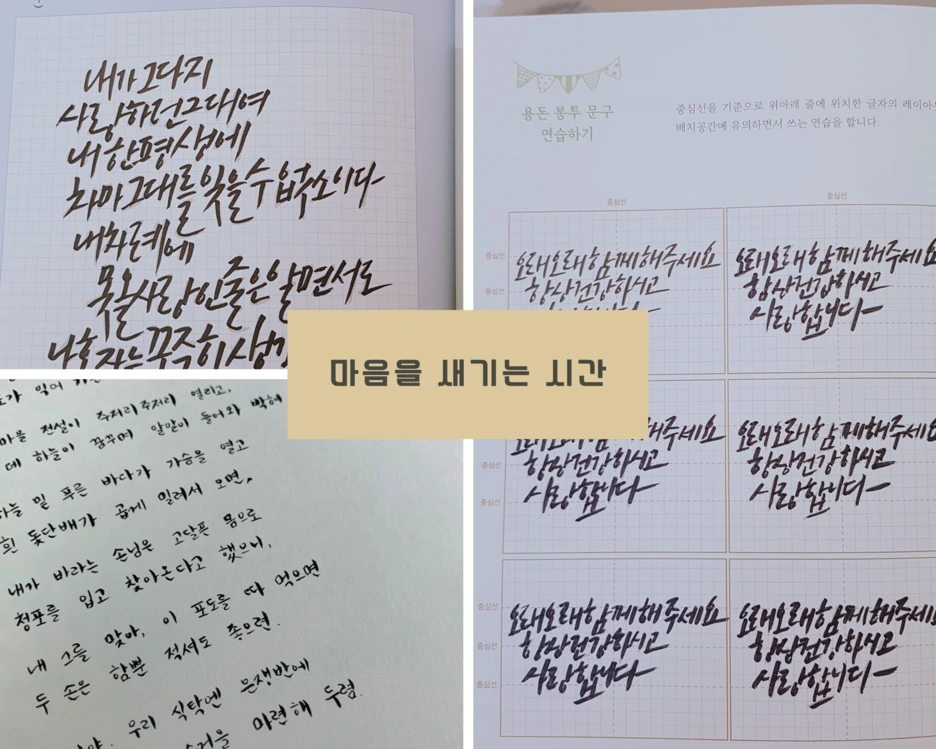 내가 그다지
사랑하던 그대여
내 한평생에
차마 그대를 잊을 수 없소이다
내 차례에
못 올 사랑인 줄은 알면서도
나 혼자는 꾸준히 생각
마을 전설이 주저리주저리 열리고,
데 하늘이 꿈꾸며 알알이 들어와 박혀
하늘 밑 푸른 바다가 가슴을 열고
흰 돛단배가 곱게 밀려서 오면,
내가 바라는 손님은 고달픈 몸으로
청포를 입고 찾아온다고 했으니,
내 그를 맞아, 이 포도를 따 먹으면
두 손은 함뿍 적셔도 좋으련.
우리 식탁엔 은쟁반에
마련해 두렴.
마음을 새기는 시간
용돈 봉투 문구
연습하기
중심선을 기준으로 위아래 줄에 위치한 글자의
배치공간에 유의하면서 쓰는 연습을 합니다.
중심선
중심선
중심선
중심선
오래오래 함께해주세요
항상 건강하시고
오래오래 함께해주세요
항상 건강하시고
사랑합니다
중심선
중심선
해주세요
항상 건강하시고
사랑합니다
오래오래 함께해주세요
항상 건강하시고
사랑합니다
중심선
중심선
중심선
오래오래 함께해주세요
항상 건강하시고
사랑합니다
오래오래 함께해주세요
항상 건강하시고
사랑합니다